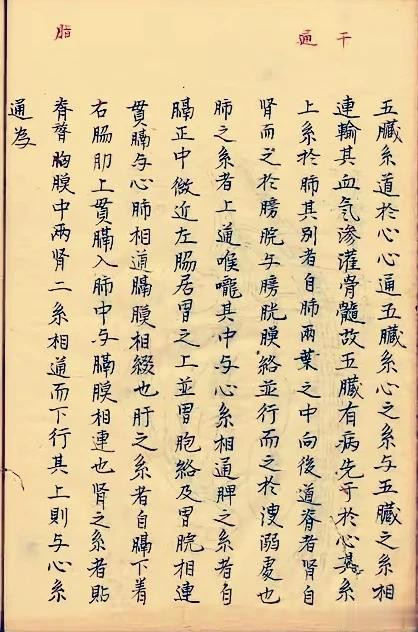 干
通
脂
五臟系道於心心通五臟系心之系与五臟之系相
連輸其血氣渗灌骨髓故五臟有病先干於心其系
上系於肺其别者自肺兩葉之中向後道脊者肾自
肾而之於膀脘与膀胱膜絡並行而之於溲溺處也
肺之系者上道喉嚨其中与心系相通脾之系者自
膈正中微近左脇居胃之上並胃胞絡及胃脘相連
贯膈与心肺相通膈膜相綴也肝之系者自膈下着
右脇肋上贯膈入肺中与膈膜相連也肾之系者貼
脊膂胸膜中两肾二系相通而下行其上則与心系
通為